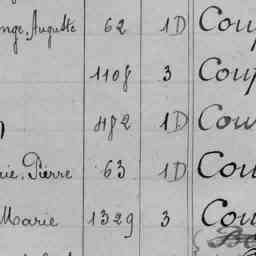 Auguste 62 1D Cou
1108 3 Coup
482 1D Cou
Pierre 63 1D Cou
Marie 1329 3 Cou